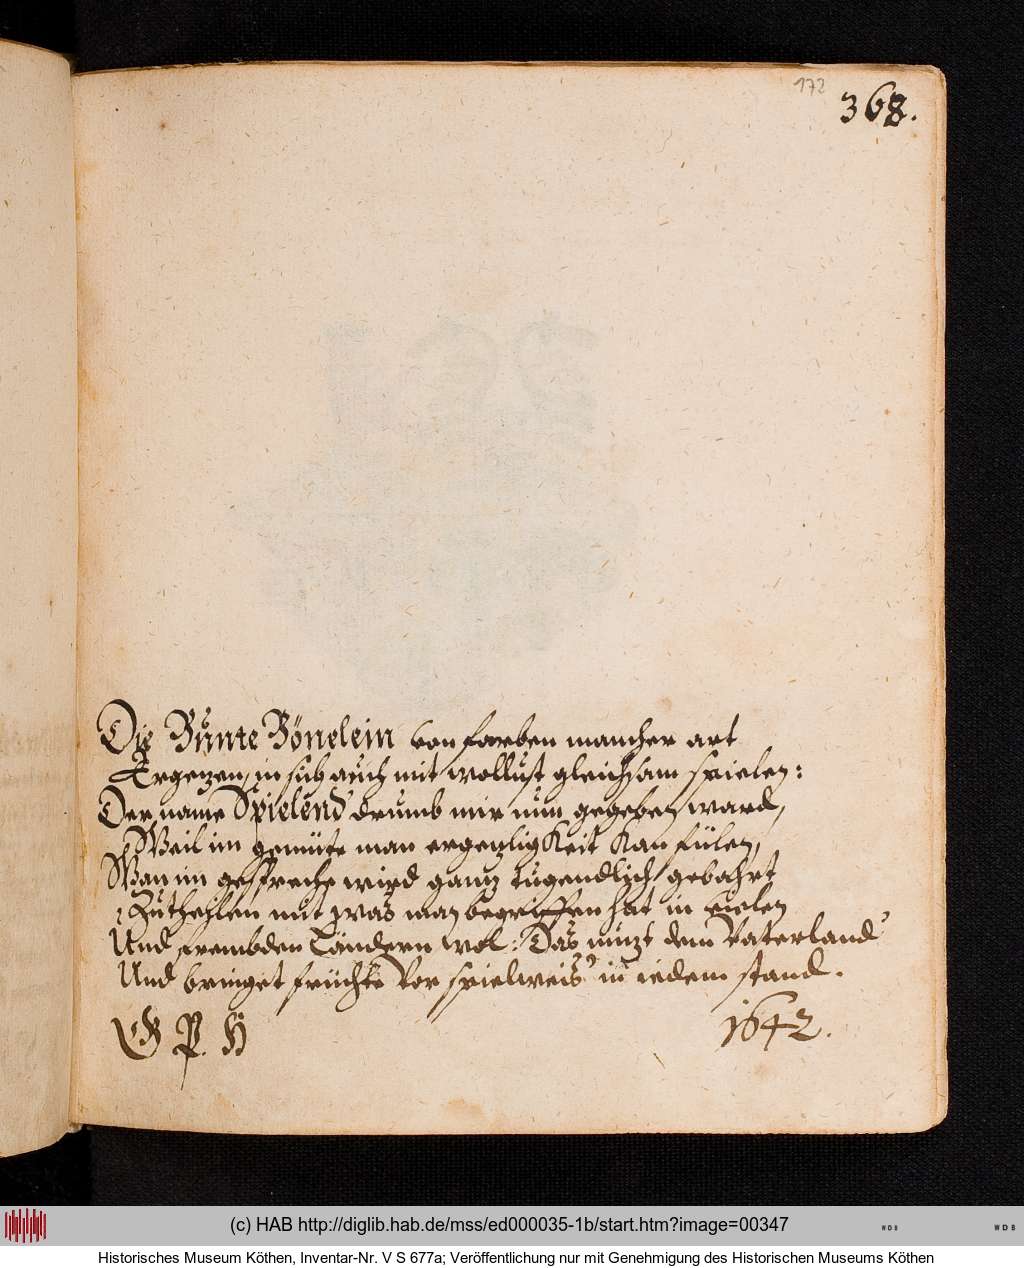 172
368.
Die Bunte Bönelein von farben mancher art
Ergetzen, in sich auch mit wollust gleichsam spielen:
Der name Spielend drumb mir nun gegeben ward,
Weil im gemüte man ergetzligkeit kan fülen,
Wan im gespreche wird gantz tugendlich gebahrt
Zutheilen mit was man begriffen hat in vielen
Und frembden Ländern wol: Das nützt dem Vaterland
Und bringet früchte vor spielweis' in iedem stand.
G P. H
1642.
(c) HAB http://diglib.hab.de/mss/ed000035-1b/start.htm?image=00347
W D B
W D B
Historisches Museum Köthen, Inventar-Nr. V S 677a; Veröffentlichung nur mit Genehmigung des Historischen Museums Köthen